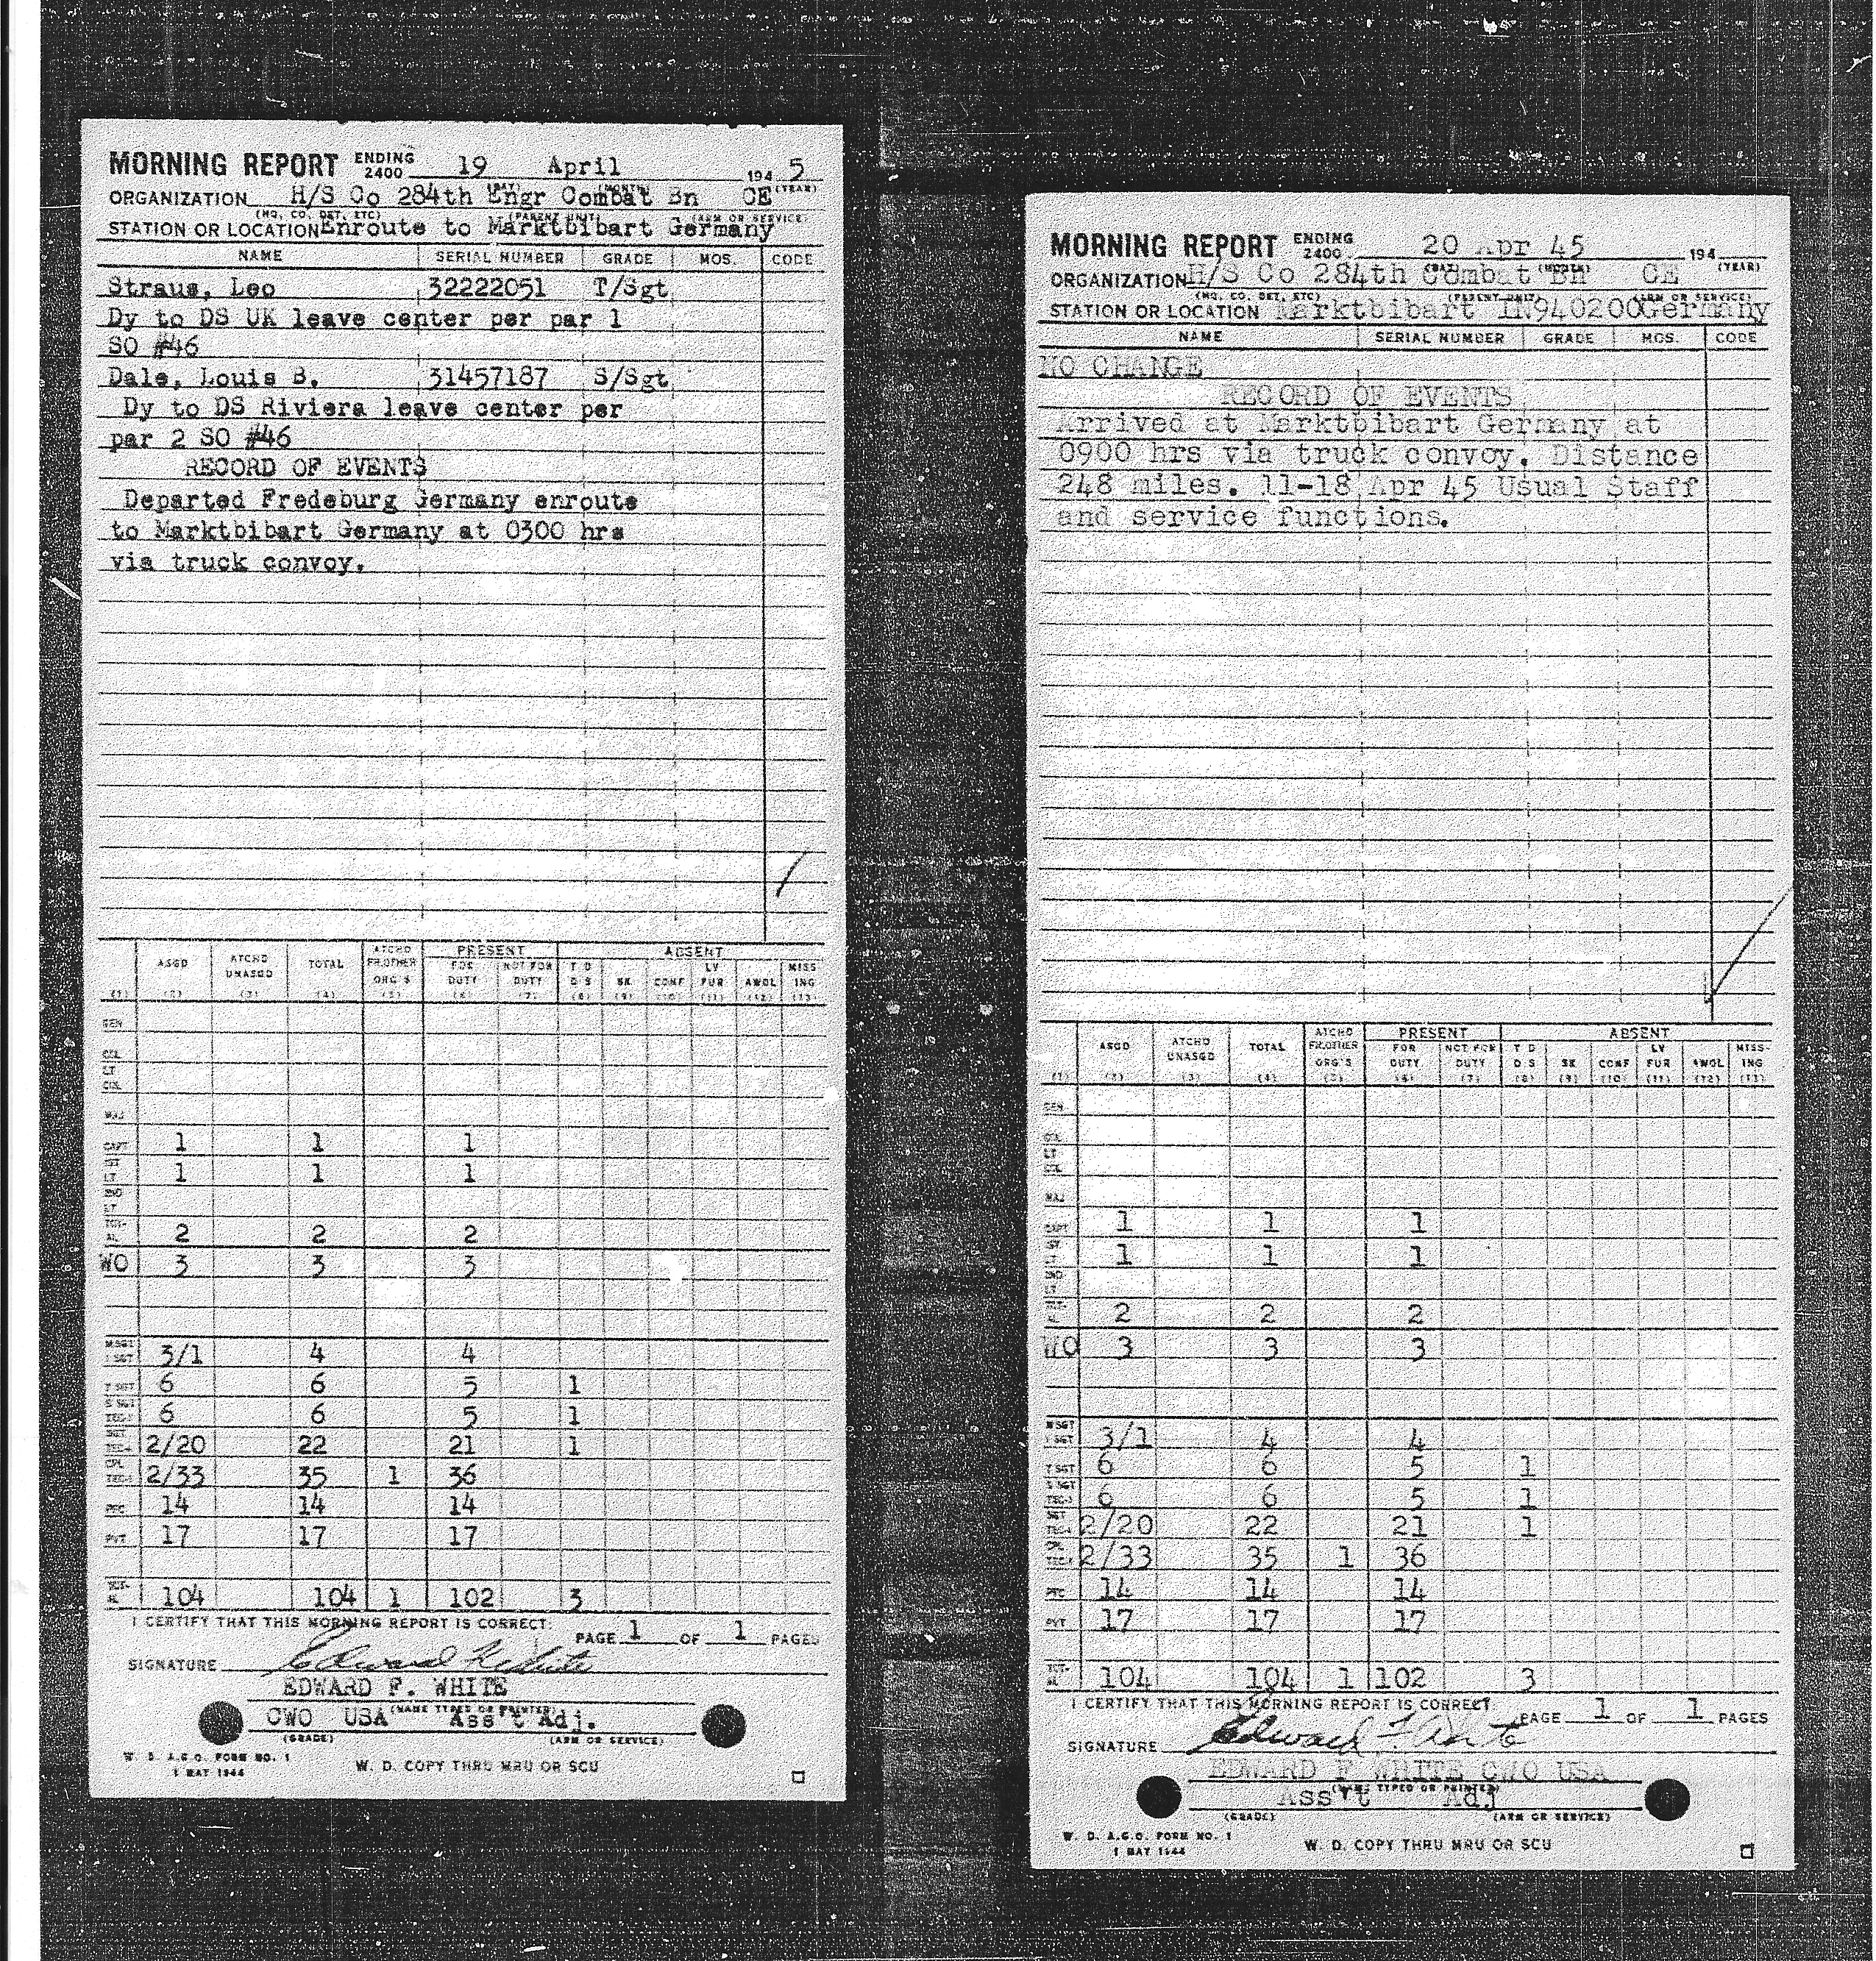 MORNING REPORT ENDING 2400 19 April 194 5
(DAY) (MONTH) (YEAR)
ORGANIZATION H/S Co 284th Engr Combat Bn CE
(HQ, CO, DET, ETC) (PARENT UNIT) (ARM OR SERVICE)
STATION OR LOCATION Enroute to Marktbibart Germany
NAME SERIAL NUMBER GRADE MOS. CODE
Straus, Leo 32222051 T/Sgt
Dy to DS UK leave center per par 1
SO #46
Dale, Louis B. 31457187 S/Sgt
Dy to DS Riviera leave center per
par 2 SO #46
RECORD OF EVENTS
Departed Fredeburg Germany enroute
to Marktbibart Germany at 0300 hrs
via truck convoy.
ASGD ATCHD UNASGD TOTAL ATCHD FR.OTHER ORG'S PRESENT ABSENT
FOR DUTY NOT FOR DUTY T D D S SK CONF LV FUR AWOL MISS ING
(1) (2) (3) (4) (5) (6) (7) (8) (9) (10) (11) (12) (13)
GEN
COL
LT COL
MAJ
CAPT 1 1 1
1ST LT 1 1 1
2ND LT
TOT-AL 2 2 2
WO 3 3 3
MSGT 1 SGT 3/1 4 4
T SGT 6 6 5 1
S SGT TEC-3 6 6 5 1
SGT TEC-4 2/20 22 21 1
CPL TEC-5 2/33 35 1 36
PFC 14 14 14
PVT 17 17 17
TOT-AL 104 104 1 102 3
I CERTIFY THAT THIS MORNING REPORT IS CORRECT. PAGE 1 OF 1 PAGES
SIGNATURE Edward F White
EDWARD F. WHITE
(NAME TYPED OR PRINTED)
CWO USA Ass't Adj.
(GRADE) (ARM OR SERVICE)
W. D. A.G.O. FORM NO. 1
1 MAY 1944
W. D. COPY THRU MRU OR SCU
MORNING REPORT ENDING 2400 20 Apr 45 194
(DAY) (MONTH) (YEAR)
ORGANIZATION H/S Co 284th Combat Bn CE
(HQ, CO, DET, ETC) (PARENT UNIT) (ARM OR SERVICE)
STATION OR LOCATION Marktbibart IN940200Germany
NAME SERIAL NUMBER GRADE MOS. CODE
NO CHANGE
RECORD OF EVENTS
Arrived at Marktbibart Germany at
0900 hrs via truck convoy. Distance
248 miles. 11-18 Apr 45 Usual Staff
and service functions.
ASGD ATCHD UNASGD TOTAL ATCHD FR.OTHER ORG'S PRESENT ABSENT
FOR DUTY NOT FOR DUTY T D D S SK CONF LV FUR AWOL MISS-ING
(1) (2) (3) (4) (5) (6) (7) (8) (9) (10) (11) (12) (13)
GEN
COL
LT COL
MAJ
CAPT 1 1 1
1ST LT 1 1 1
2ND LT
TOT-AL 2 2 2
WO 3 3 3
MSGT 1 SGT 3/1 4 4
T SGT 6 6 5 1
S SGT TEC-3 6 6 5 1
SGT TEC-4 2/20 22 21 1
CPL TEC-5 2/33 35 1 36
PFC 14 14 14
PVT 17 17 17
TOT-AL 104 104 1 102 3
I CERTIFY THAT THIS MORNING REPORT IS CORRECT. PAGE 1 OF 1 PAGES
SIGNATURE Edward F. White
EDWARD F WHITE CWO USA
(NAME TYPED OR PRINTED)
Ass't Adj
(GRADE) (ARM OR SERVICE)
W. D. A.G.O. FORM NO. 1
1 MAY 1944
W. D. COPY THRU MRU OR SCU